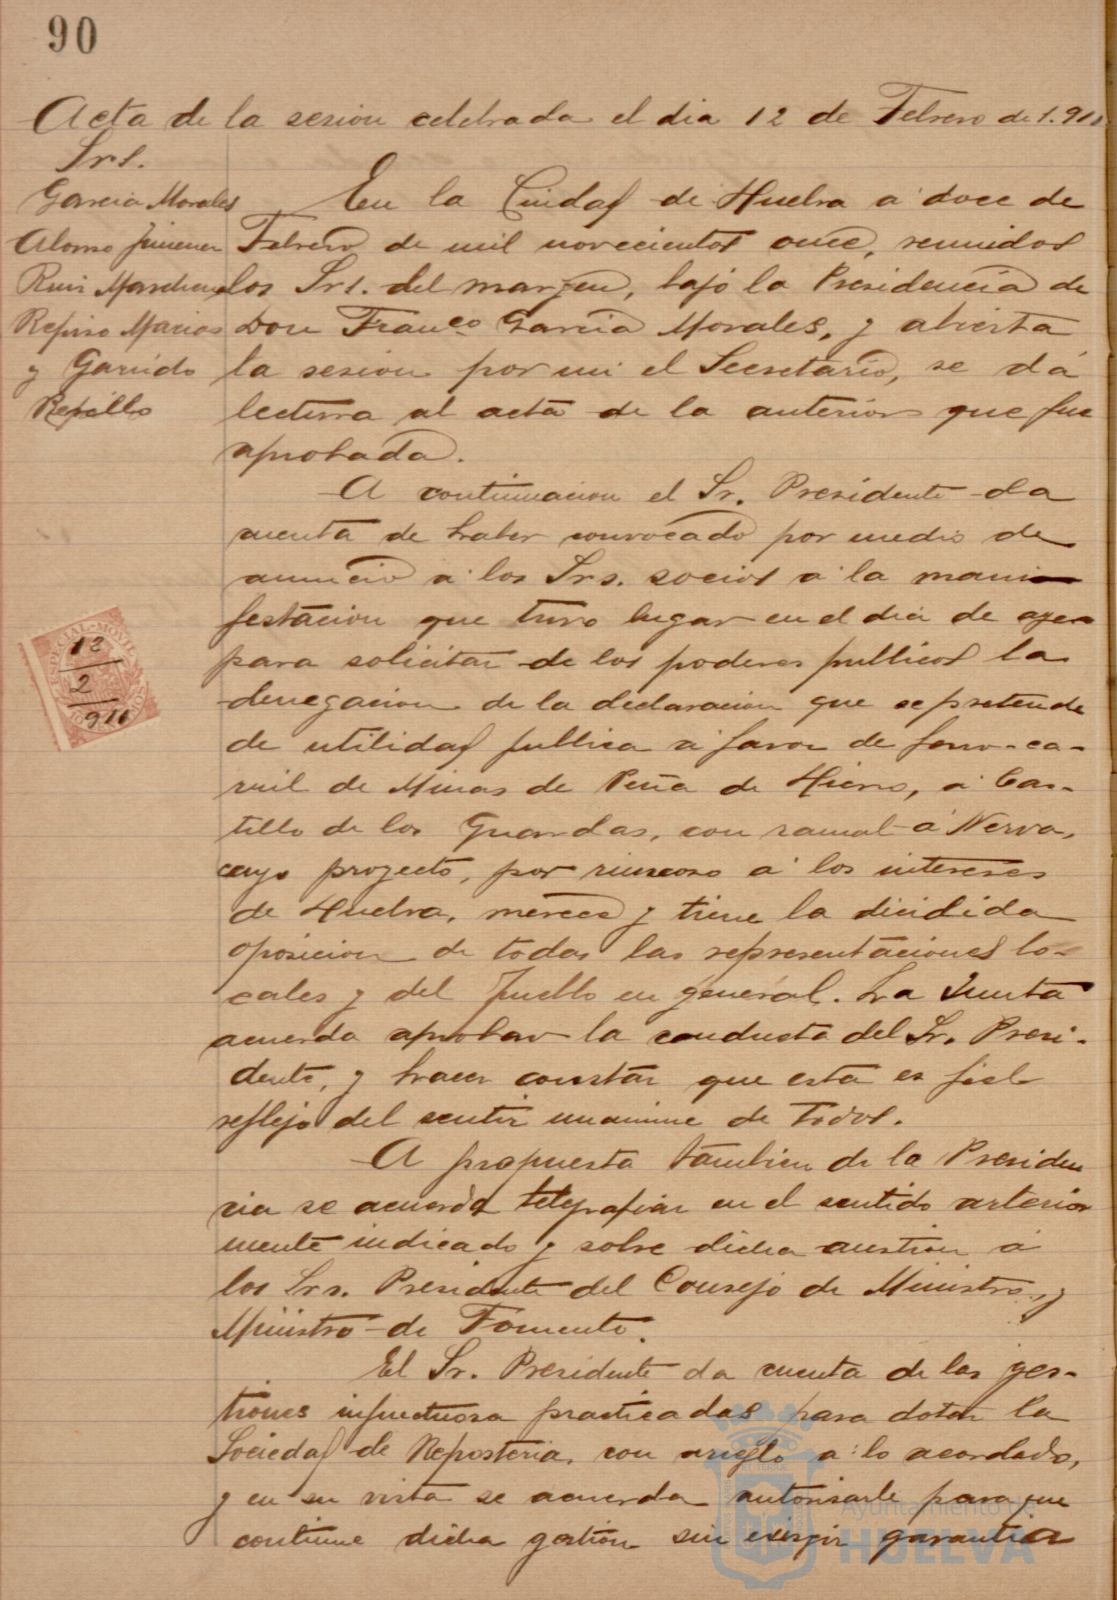 90
Acta de la sesion celebrada el dia 12 de Febrero de 1.911
Srs.
Garcia Morales
Alonso Jimenez
Ruiz Marchena
Repiso Macias
y Garrido
Repillo
En la Ciudad de Huelva a doce de
Febrero de mil novecientos once, reunidos
los Srs. del margen, bajo la Presidencia de
Don Franco Garcia Morales, y abierta
la sesion por mi el Secretario, se dá
lectura al acta de la anterior que fue
aprobada.
A continuacion el Sr. Presidente da
cuenta de haber convocado por medio de
anuncio a los Srs. socios a la mani
festacion que tuvo lugar en el dia de ayer
para solicitar de los poderes publicos la
denegacion de la declaracion que se pretende
de utilidad publica a favor de ferro-ca-
rril de Minas de Peña de Hierro, a Cas-
tillo de los Guardas, con ramal a Nerva,
cuyo proyecto, por ruinoso a los intereses
de Huelva, merece y tiene la dicidida
oposicion de todas las representaciones lo-
cales y del pueblo en general. La Junta
acuerda aprobar la conducta del Sr. Presi-
dente, y hacer constar que esta es fiel
reflejo del sentir unanime de todos.
A propuesta tambien de la Presiden
cia se acuerda telegrafiar en el sentido anterior
mente indicado y sobre dicha cuestion a
los Srs. Presidente del Consejo de Ministros, y
Ministro de Fomento.
El Sr. Presidente da cuenta de las ges-
tiones infructuosa practicadas para dotar la
Sociedad de Reposteria, con areglo a lo acordado,
y en su vista se acuerda autorisarle para que
continue dicha gestion sin exsigir garantia
ESPECIAL-MOVIL
12
2
911
Ayuntamiento de
HUELVA